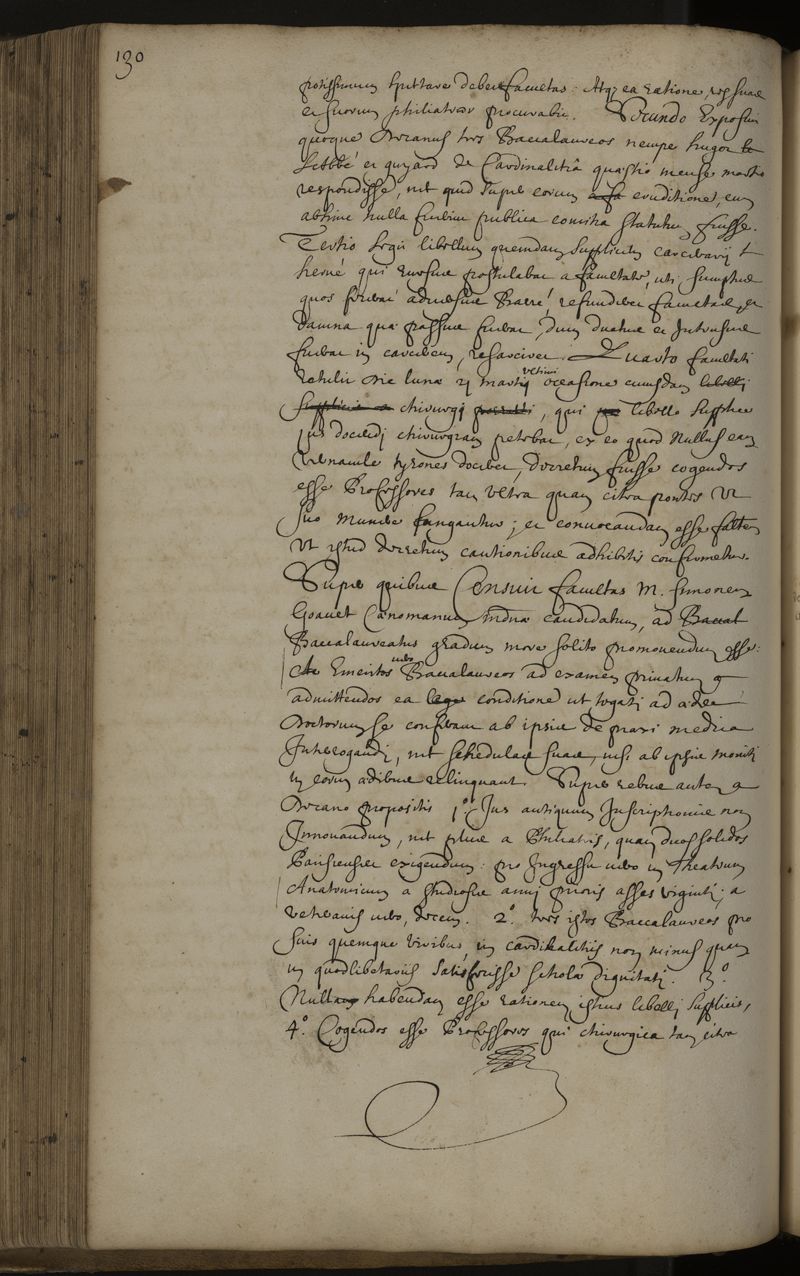 130
potissimum spectare debet facultas. Atq; ea ratione, rei suae
et suorum philiatrorum procurabit. Secundo Exposuit
quoque Decanus tres Baccalaureos nempe hugot
et guyard de Cardinalitia quaestio mense martio
respondisse, nec quid super eorum eruditione, cum
abhinc nulla fuerint publica comitia statutum fuisse.
Tertio legit libellum quemdam supplicem
qui rursum postulabat a facultate, uti sumptus
quos fecerat adversus Barré, refunderet facultas, et
damna quae passus fuerat, dum ductus et Intrusus
fuerat in carcerem, resarciret. Quarto facultati
retulit die lunae 21 martij ultimi occasione cuiusdam libelli
chirurgi, qui libello supplice
jus docendi chirurgiam petebat, ex eo quod Nullus eam
Vernacule tyrones doceret, decretum fuisse cogendos
esse Professores tam ultra quam citra pontes ut
suo munere fungantur; et convocandam esse facultatem
ut istud decretum cautionibus adhibitis confirmetur.
Super quibus Censuit facultas M. Simonem
Goauet Cenomanum candidatum, ad Baccal
Baccalaureatus gradum more solito promovendum esse:
Emeritos vero Baccalaureos ad examen privatum
admittendos ea lege conditione ut togati ad aedes
Doctorum se conferant ab ipsis de praxi medica
Interrogandi, nec schedulas suas, nisi ab ipsis moniti
in eorum aedibus relinquant. Super rebus autem a
Decano propositis 1o. Jus antiquum Inscriptionis non
Innovandum, nec plus a Philiatris, quam duos solidos
Parisienses exigendum: pro Ingressu vero in Theatrum
Anatomicum a studiosis anni prioris asses viginti; a
veteranis vero, decem. 2o. tres istos Baccalaureos pro
suis quemque viribus, in cardinalitiis non minus quam
in quodlibetariis satisfecisse scholae dignitati. 3o.
Nullam habendam esse rationem istius libelli supplicis,
4o. Cogendos esse Professores qui chirurgica tam citra